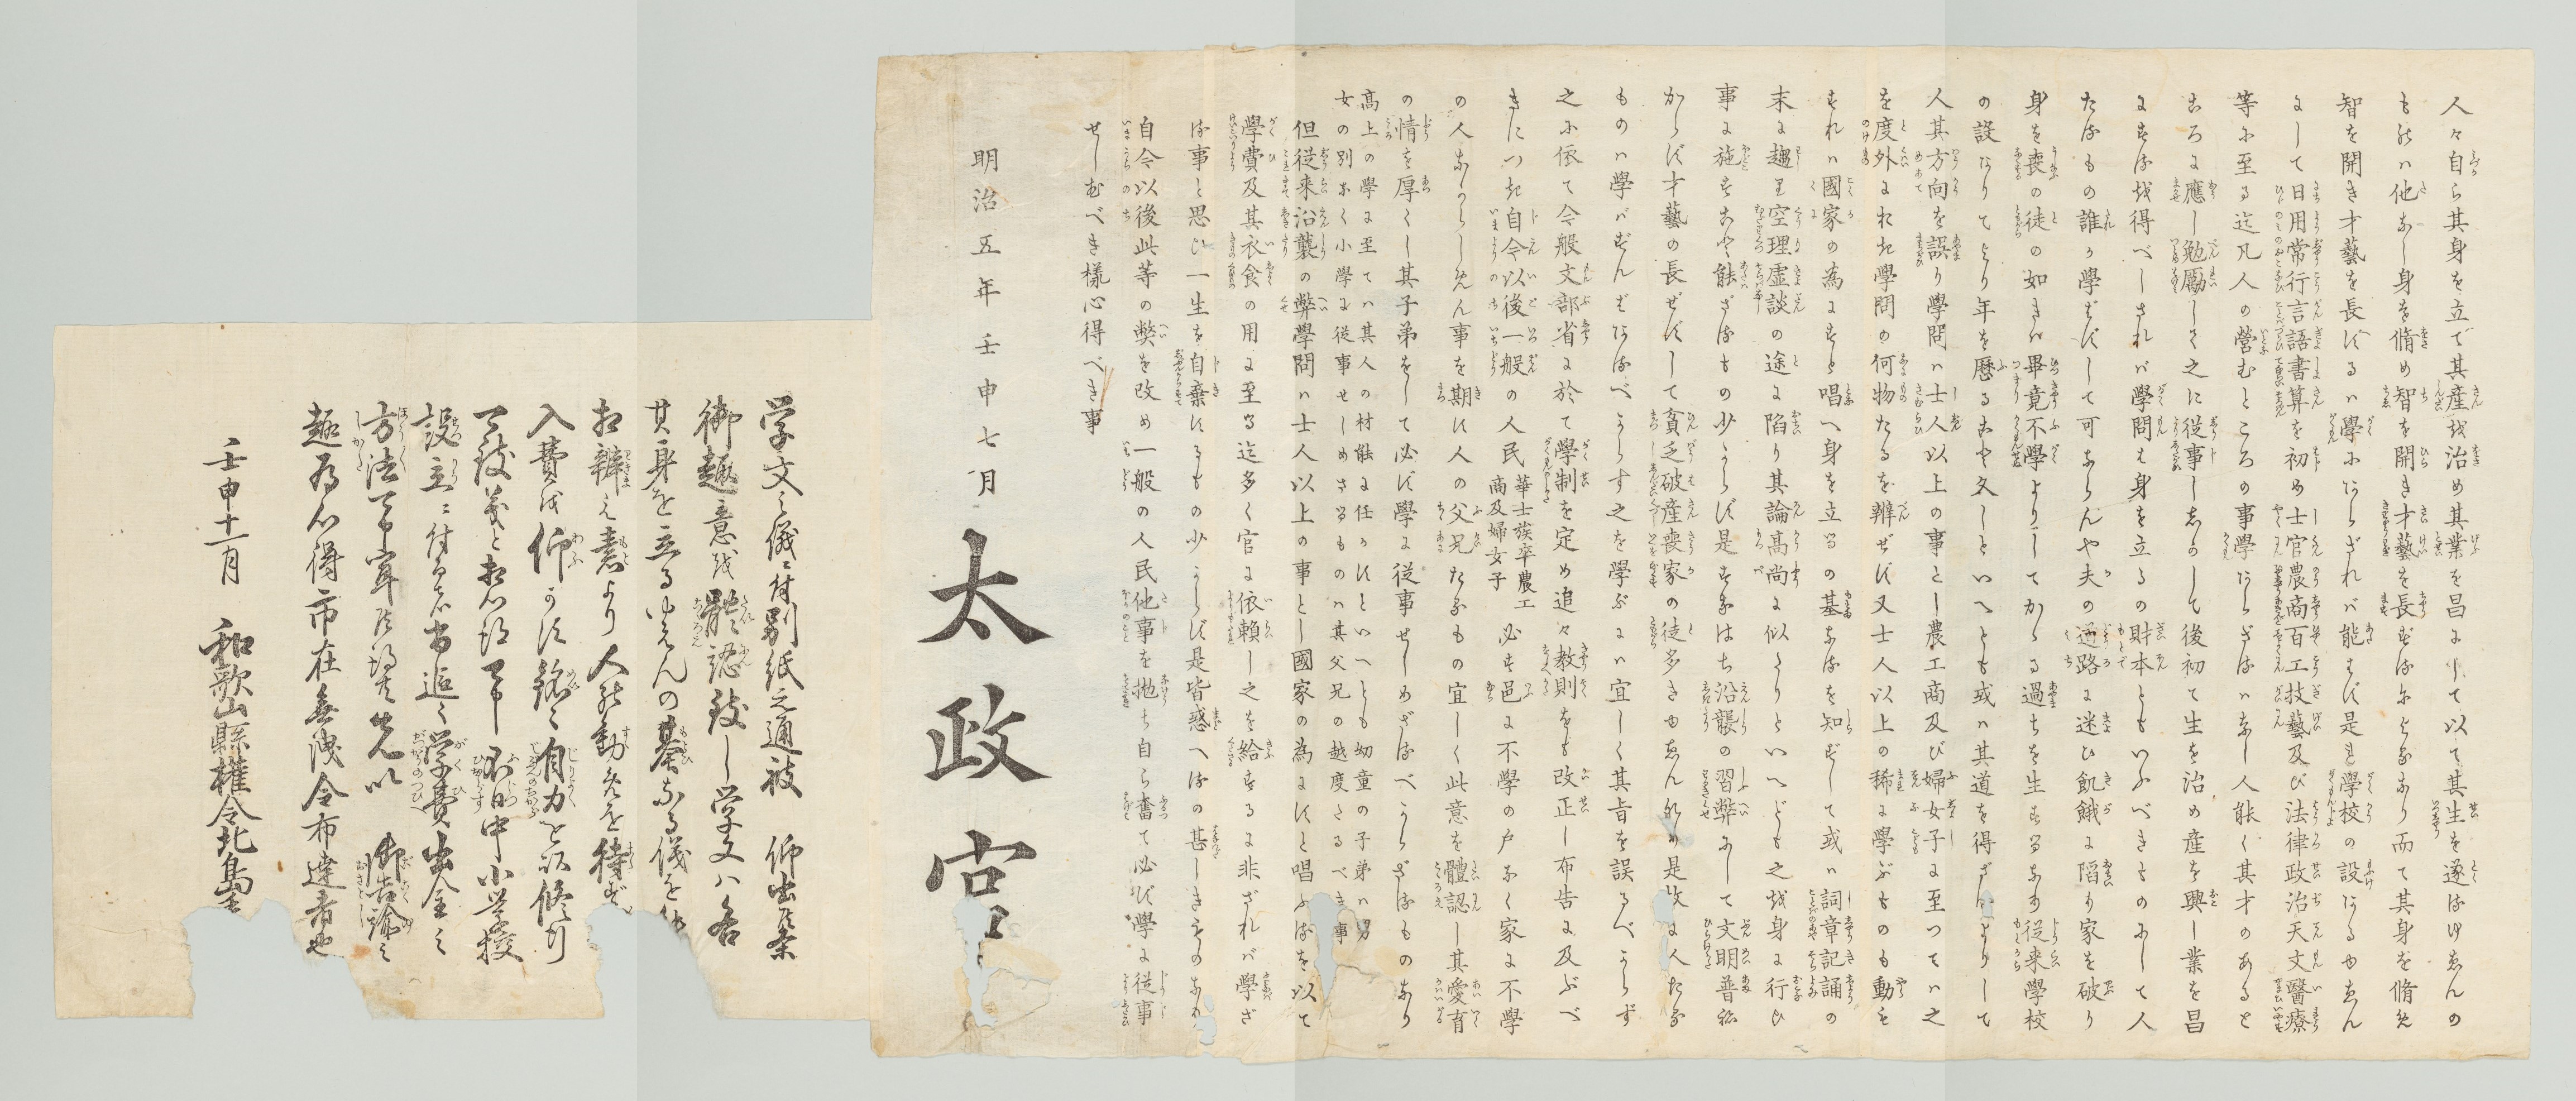 人々自ら其身を立て其産を治め其業を昌にして以て其生を遂るゆゑんの
ものは他なし身を脩め智を開き才藝を長ずるによるなり而て其身を脩め
智を開き才藝を長ずるは學にあらざれば能はず是れ學校の設あるゆゑん
にして日用常行言語書算を初め士官農商百工技藝及び法律政治天文醫療
等に至る迄凡人の營むところの事學あらざるはなし人能く其才のあると
ころに應じ勉勵して之に從事ししかして後初て生を治め産を興し業を昌
にするを得べしされば學問は身を立るの財本ともいふべきものにして人
たるもの誰か學ばずして可ならんや夫の道路に迷ひ飢餓に陷り家を破り
身を喪の徒の如きは畢竟不學よりしてかゝる過ちを生ずるなり從来學校
の設ありてより年を歴ること久しといへども或は其道を得ざるよりして
人其方向を誤り學問は士人以上の事とし農工商及び婦女子に至つては之
を度外におき學問の何物たるを辨ぜず又士人以上の稀に學ぶものも動も
すれは國家の為にすと唱へ身を立るの基たるを知ずして或は詞章記誦の
末に趨り空理虚談の途に陷り其論高尚に似たりといへども之を身に行ひ
事に施すこと能ざるもの少からず是すなはち沿襲の習弊にして文明普ね
からず才藝の長ぜずして貧乏破産喪家の徒多きゆゑんなり是故に人たる
ものは學ばずんばあるべからず之を學ぶには宜しく其旨を誤るべからず
之に依て今般文部省に於て學制を定め追々教則をも改正し布告に及ぶべ
きにつき自今以後一般の人民華士族卒農工商及婦女子必ず邑に不學の戸なく家に不學
の人なからしめん事を期す人の父兄たるもの宜しく此意を體認し其愛育
の情を厚くし其子弟をして必ず學に從事せしめざるべからざるものなり
高上の學に至ては其人の材能に任かすといへども幼童の子弟は男
女の別なく小學に從事せしめざるものは其父兄の越度たるべき事
但從来沿襲の弊學問は士人以上の事とし國家の為にすと唱ふるを以て
學費及其衣食の用に至る迄多く官に依頼し之を給するに非ざれば學ざ
る事と思ひ一生を自棄するもの少からず是皆惑へるの甚しきものなり
自今以後此等の弊を改め一般の人民他事を抛ち自ら奮て必ず學に從事
せしむべき樣心得べき事
明治五年壬申七月
太政官
学文之儀ニ付別紙之通被 仰出候条
御趣意を體認致し学文ハ各
其身を立るゆゑんの基なる儀を
相辨え素より人の勧めを待ず
入費を仰かず銘々自力を以修行
可致義と相心得可申不日中小学校
設立ニ付而者当追々学費出金之
方法可申宜候得共先以 御告諭之
趣為心得市在無洩令布達者也
壬申十一月 和歌山縣權令北島